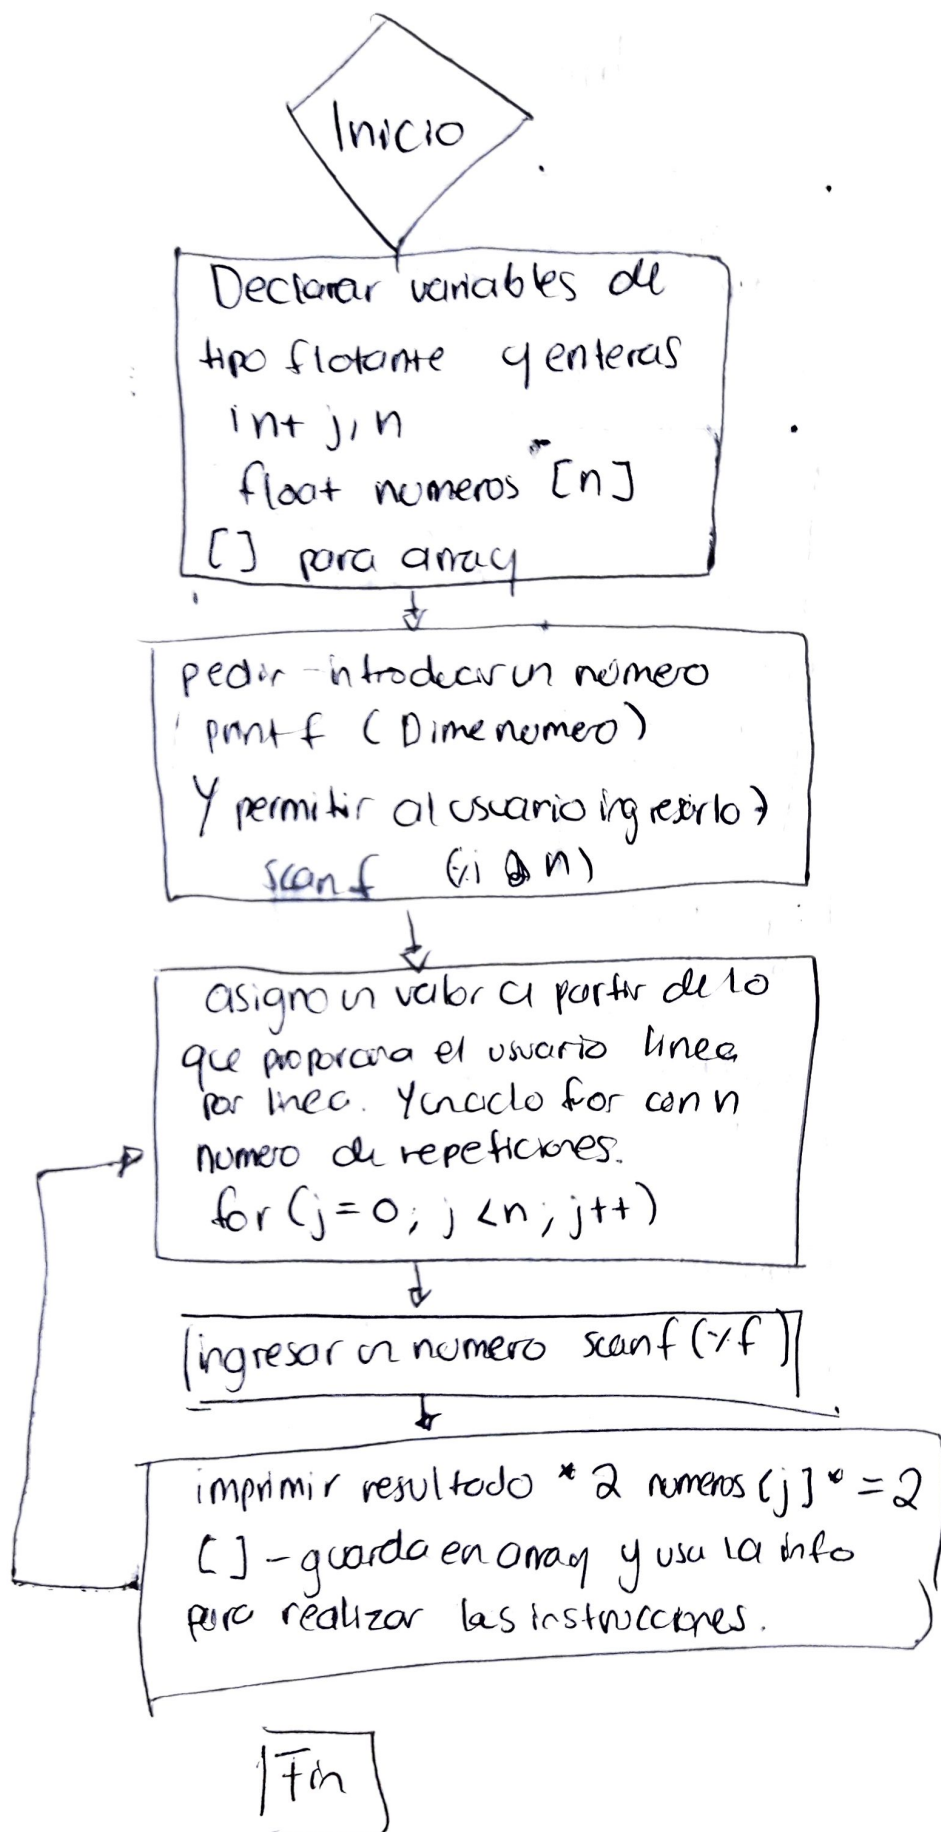 Inicio
Declarar variables de
tipo flotante y enteras
int j, n
float numeros [n]
[] para array
pedir introducir un número
printf (Dime numero)
Y permitir al usuario ingresarlo
scanf (%i & n)
asigno un valor a partir de lo
que proporciona el usuario linea
por linea. Y un ciclo for con n
numero de repeticiones.
for (j=0; j <n; j++)
ingresar un numero scanf (%f)
imprimir resultado * 2 numeros [j] * = 2
[] - guarda en array y usa la info
para realizar las instrucciones.
Fin